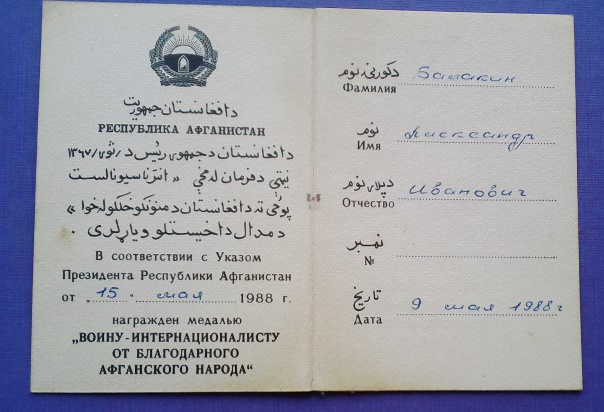 د افغانستان جمهوریت
РЕСПУБЛИКА АФГАНИСТАН
د افغانستان د جمهوری رئیس د / ثور / ۱۳۶۷
نیټې د فرمان له مخې « انترناسیونالست
پوځي ته د افغانستان د مننونکو خلکو له خوا »
د مدال د اخیستلو ویاړ لری .
В соответствии с Указом
Президента Республики Афганистан
от 15. мая 1988 г.
награжден медалью
„ВОИНУ-ИНТЕРНАЦИОНАЛИСТУ
ОТ БЛАГОДАРНОГО
АФГАНСКОГО НАРОДА“
دکورنۍ نوم Балакин
Фамилия
نوم Александр
Имя
د پلار نوم Иванович
Отчество
نمبر
№
تاریخ 9 мая 1988 г
Дата